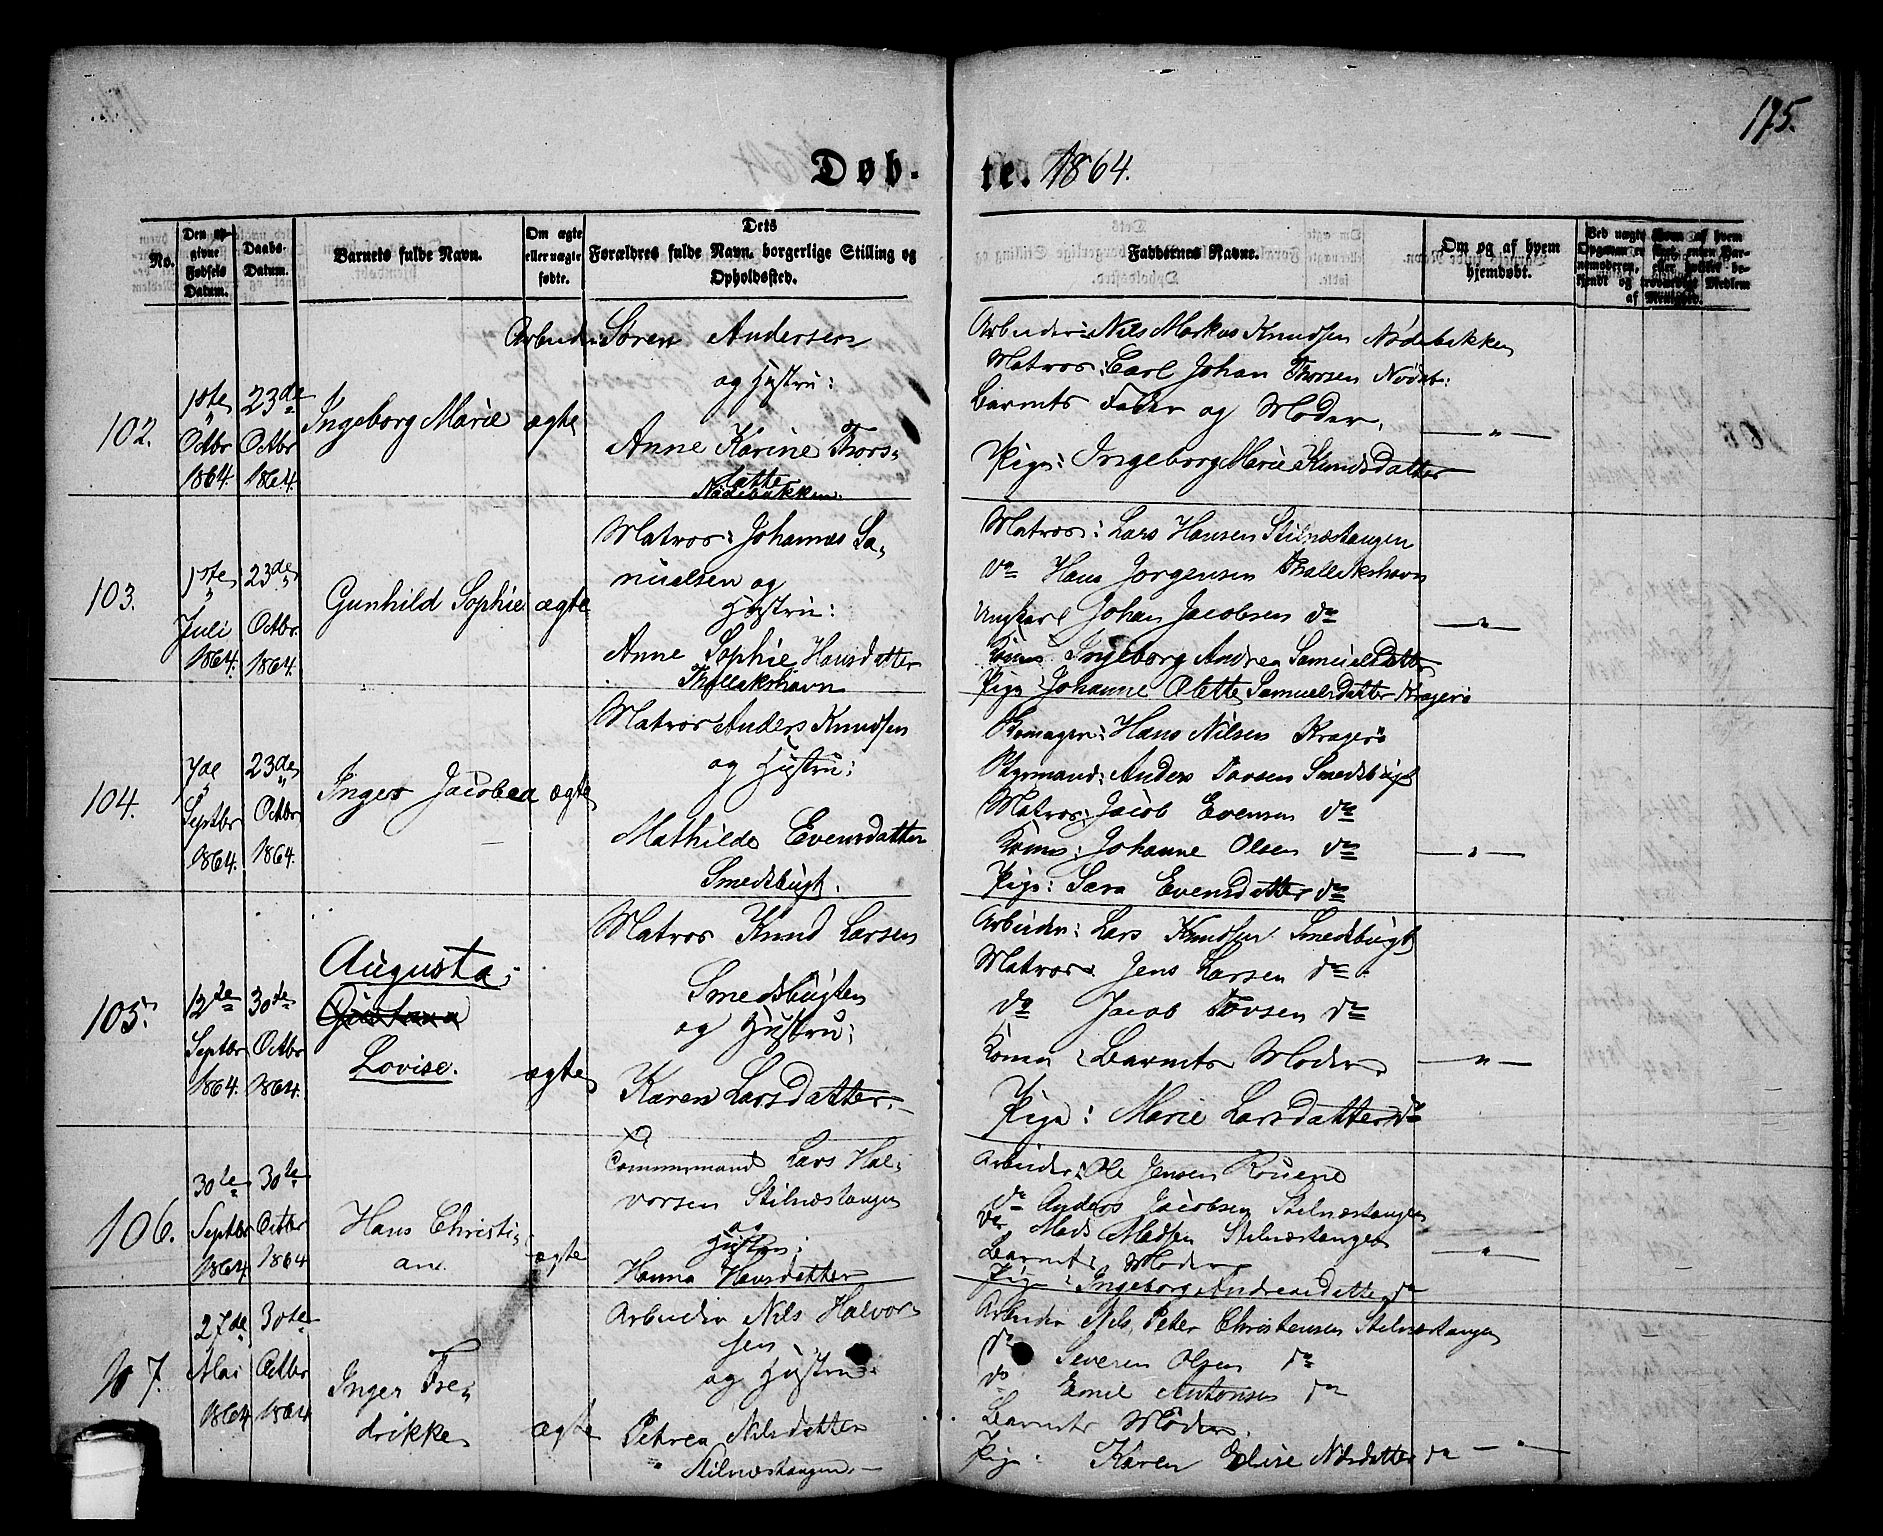 175.
Døb-
te. 1864.
No.
Den op-
givne
Fødsels
Datum.
Daabs-
Datum.
Barnets fulde Navn.
Om ægte
eller uægte
fødte.
Dets
Forældres fulde Navn, borgerlige Stilling og
Opholdssted.
Faddernes Navne.
Om og af hvem
hjemdøbt.
102.
1ste
Octbr
1864.
23de
Octbr
1864.
Ingeborg Marie
ægte
Arbeider Søren Andersen
og Hustru:
Anne Karine Thors-
datter
Nødebakken.
Arbeider: Nils Markus Knudsen Nødebakken
Matros: Carl Johan Thorsen Nødeb:
Barnets Fader og Moder.
Pige: Ingeborg Marie Knudsdatter
— " —
103.
1ste
Juli
1864.
23de
Octbr.
1864.
Gunhild Sophie
ægte
Matros: Johannes Sa-
muelsen og
Hustru:
Anne Sophie Hansdatter
Thollakshavn
Matros: Lars Hansen Stilnæstangen
do Hans Jørgensen Thollakshavn
Ungkarl Johan Jacobsen do
Kone: Ingeborg Andrea Samuelsdatter
Pige: Johanne Olette Samuelsdatter Kragerø
— " —
104.
7de
Septbr
1864.
23de
Octbr
1864.
Inger Jacobea
ægte
Matros Anders Knudsen
og Hustru:
Mathilde Evensdatter
Smedsbugt.
Hans Nilsen Kragerø
Styrmand: Anders Tovsen Smedsbugt
Matros: Jacob Evensen do
Kone: Johanne Olsen do
Pige: Sara Evensdatter do
— " —
105.
12te
Septbr
1864.
30te
Octbr
1864.
Augusta
Lovise.
ægte
Matros Knud Larsen
Smedsbugten
og Hustru:
Karen Larsdatter.
Arbeider: Lars Knudsen Smedsbugt
Matros: Jens Larsen do
do Jacob Tovsen do
Kone: Barnets Moder.
Pige: Marie Larsdatter do
— " —
106.
30te
Septbr
1864.
30te
Octbr
1864
Hans Christi-
an.
ægte
Tømmermand Lars Hal-
vorsen Stilnæstangen
og
Hustru:
Hanna Hansdatter
Arbeider: Ole Jensen
do Anders Jacobsen Stilnæstangen
do Mads Madsen Stilnæstangen
Barnets Moder
Pige: Ingeborg Andreasdatter do
— " —
107.
27de
Mai
1864
30te
Octbr
1864
Inger Fre-
drikke
ægte
Arbeider Nils Halvor-
sen
og Hustru:
Petrea Nilsdatter
Stilnæstangen.
Arbeider Nils Peter Christensen Stilnæstangen
do Severen Olsen do
do Emil Antonsen do
Barnets Moder.
Pige. Karen Elise Nilsdatter do
— " —